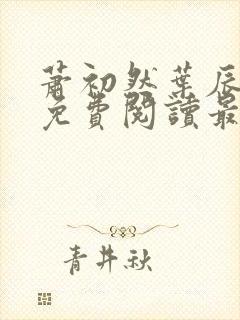 萧初然葉辰
免費閱讀最
青井秋